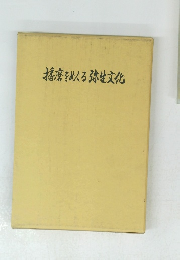 播磨をめぐる弥生文化